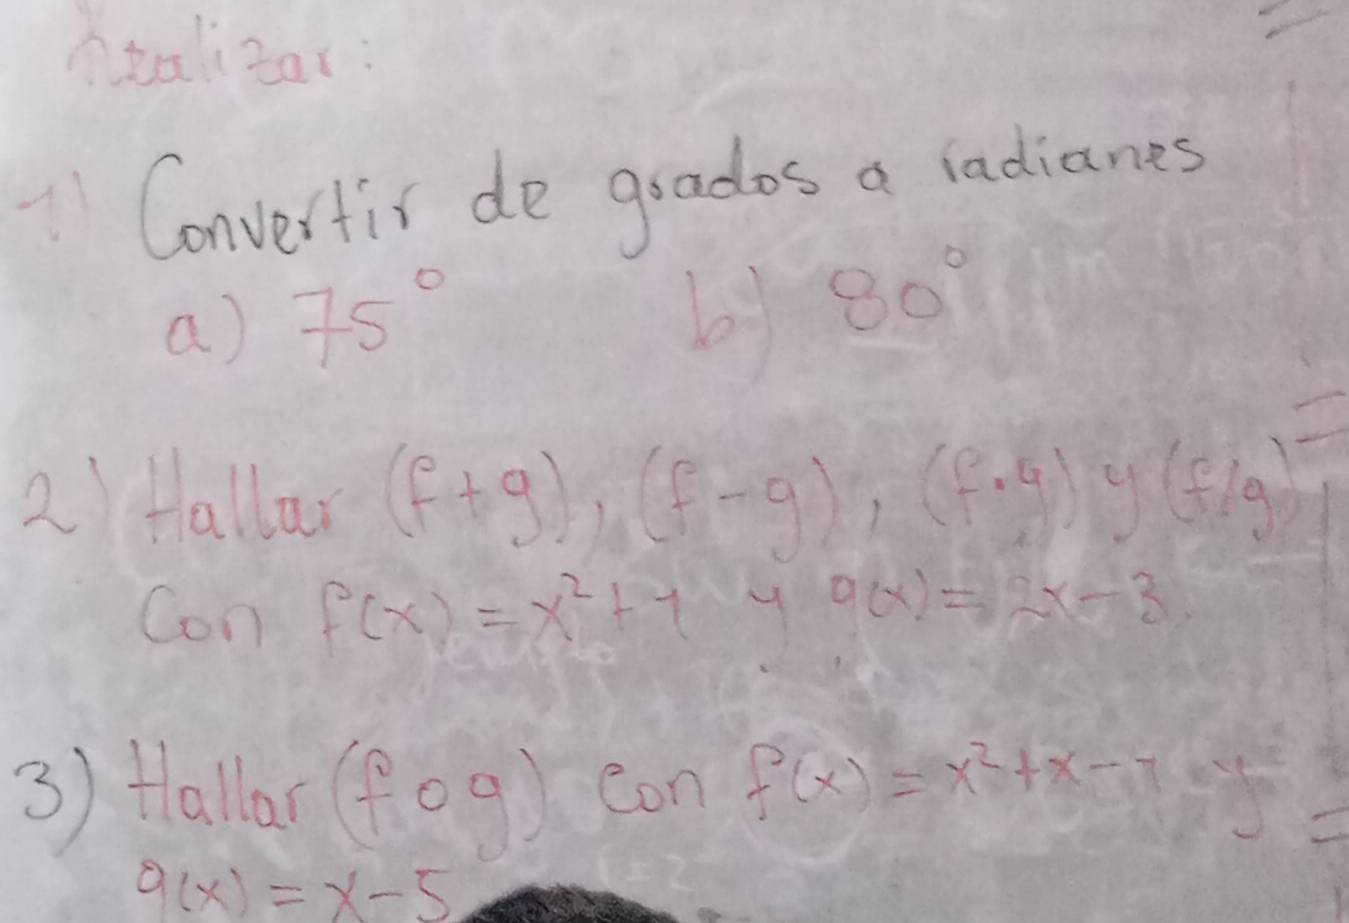 Realizar:
1) Convertir de grados a radianes
a) 75° b) 80°
2) Hallar (f+g), (f-g), (f·g) y (f/g)
Con f(x) = x²+1 y g(x) = 2x-3.
3) Hallar (f o g) con f(x) = x²+x-1 y
g(x) = x-5